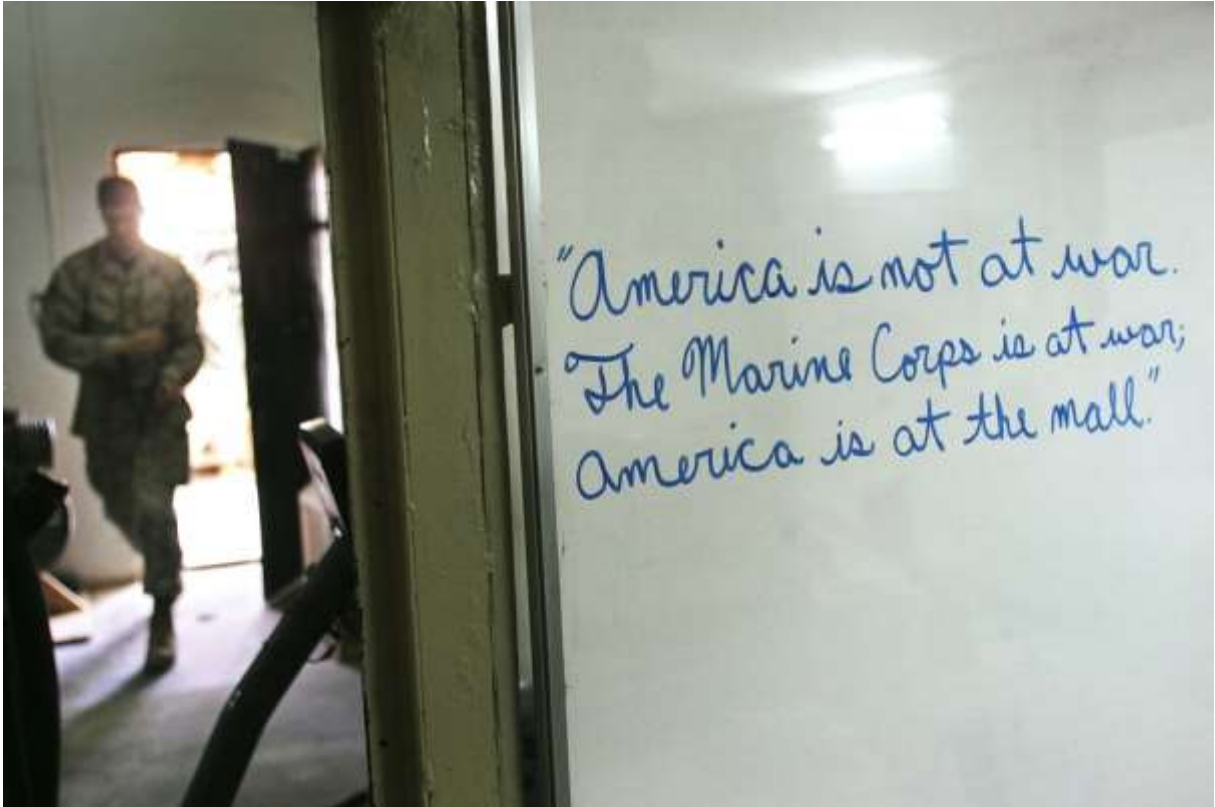 "America is not at war.
The Marine Corps is at war;
America is at the mall."